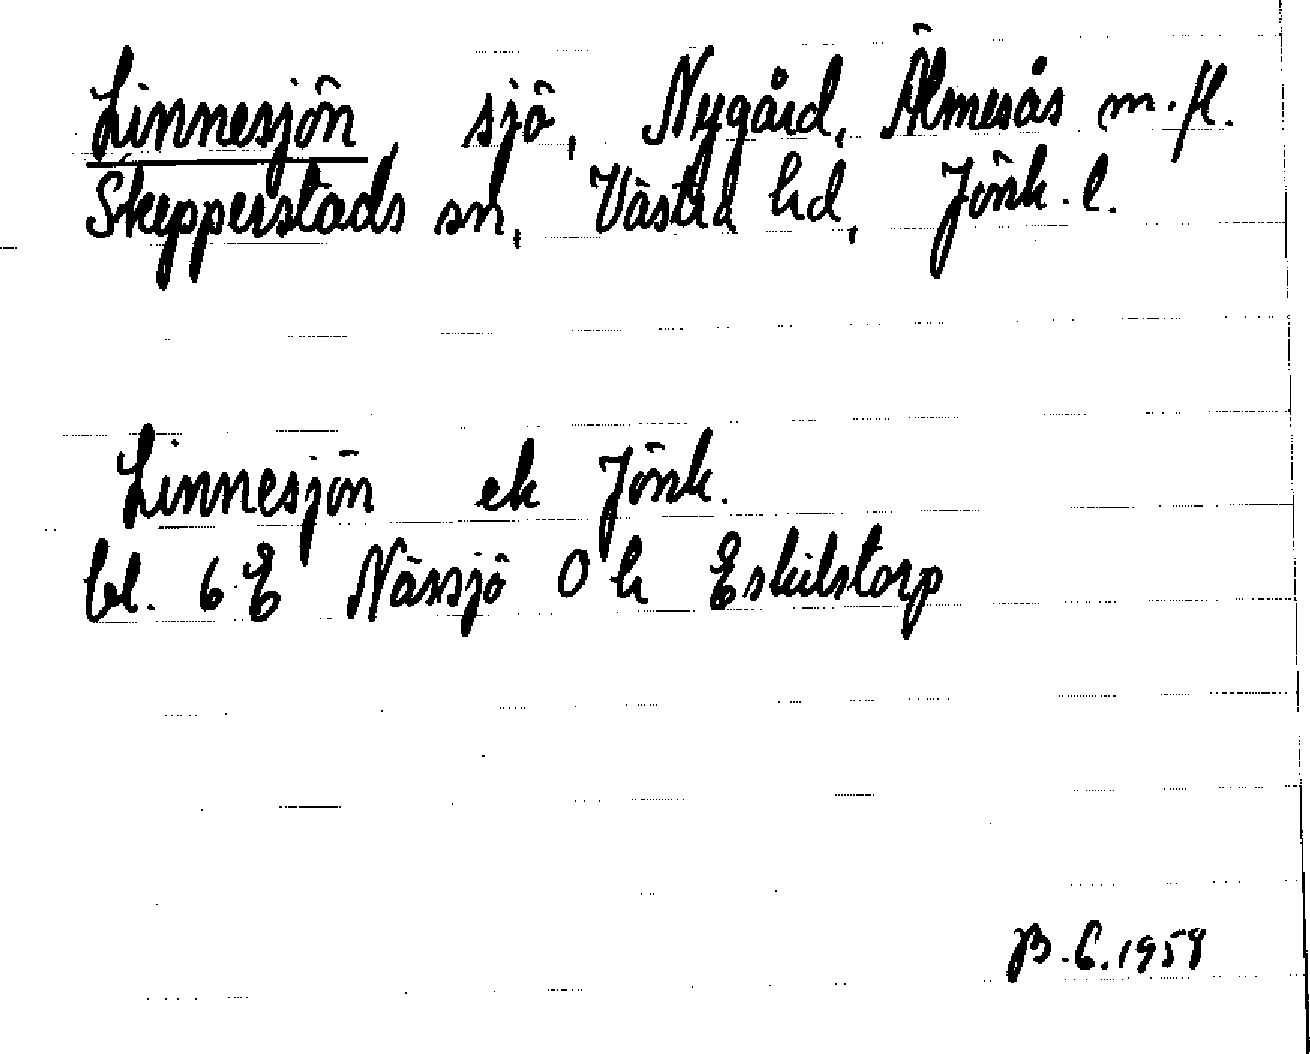 Linnesjön, sjö, Nygård, Älmesås m.fl.
Skepperstads sn, Västra hd, Jönk.l.
Linnesjön ek Jönk.
bl. 6 E Nässjö 0 h Eskilstorp
B.E. 1958